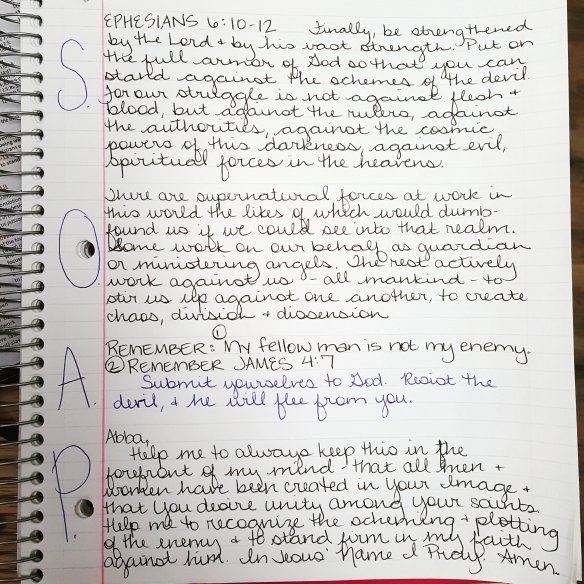 EPHESIANS 6:10-12 Finally, be strengthened
by the Lord + by his vast strength. Put on
the full armor of God so that you can
stand against the schemes of the devil
S. for our struggle is not against flesh +
blood, but against the rulers, against
the authorities, against the cosmic
powers of this darkness, against evil,
spiritual forces in the heavens.
There are supernatural forces at work in
this world the likes of which would dumb-
found us if we could see into that realm.
O. Some work on our behalf as guardian
or ministering angels. The rest actively
work against us - all mankind - to
stir us up against one another, to create
chaos, division + dissension
①
REMEMBER: My fellow man is not my enemy.
② REMEMBER JAMES 4:7
A. Submit yourselves to God. Resist the
devil, + he will flee from you.
Abba,
Help me to always keep this in the
forefront of my mind - that all men +
P. women have been created in Your Image +
that You desire unity among Your saints.
Help me to recognize the scheming + plotting
of the enemy + to stand firm in my faith
against him. In Jesus' Name I Pray. Amen.